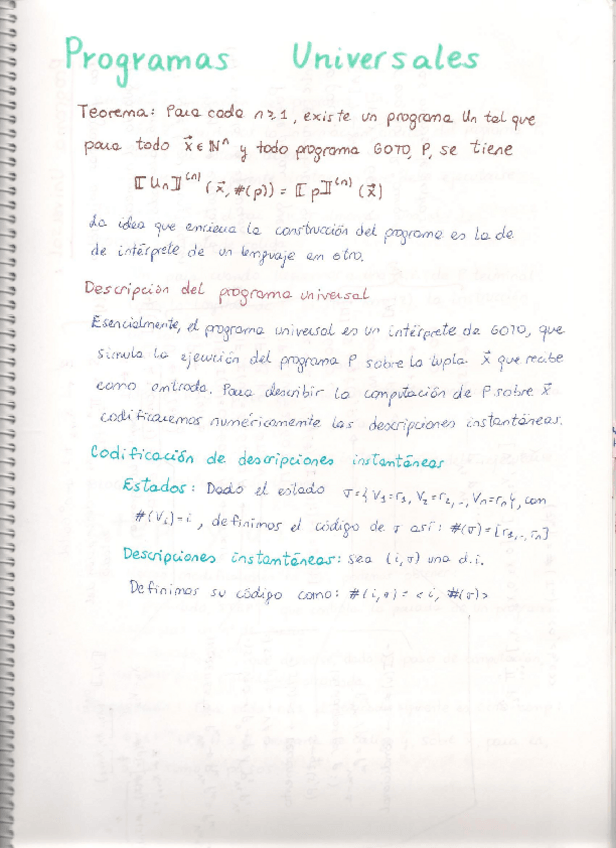 Programas Universales
Teorema: Para cada n≥1, existe un programa Un tal que
para todo x⃗ ∈ ℕⁿ y todo programa GOTO, P, se tiene
⟦Un⟧⁽ⁿ⁾(x⃗, #(p)) = ⟦p⟧⁽ⁿ⁾(x⃗)
La idea que encierra la construcción del programa es la de
de intérprete de un lenguaje en otro.
Descripción del programa universal
Esencialmente, el programa universal es un intérprete de GOTO, que
simula la ejecución del programa P sobre la tupla x⃗ que recibe
como entrada. Para describir la computación de P sobre x⃗
codificaremos numéricamente las descripciones instantáneas.
Codificación de descripciones instantáneas
Estados: Dado el estado σ={V₁=r₁, V₂=r₂,..,Vn=rn}, con
#(Vi)=i, definimos el código de σ así: #(σ)=[r₁,..,rn]
Descripciones instantáneas: sea (i,σ) una d.i.
Definimos su código como: #(i,σ) = <i, #(σ)>